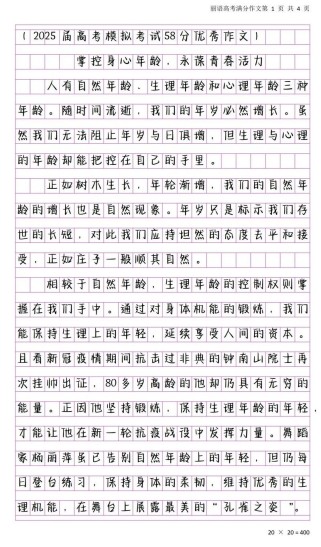 丽语高考满分作文第 1 页 共 4 页
（2025届高考模拟考试58分优秀作文）
掌控身心年龄，永葆青春活力
人有自然年龄、生理年龄和心理年龄三种
年龄。随时间流逝，我们的年岁必然增长。虽
然我们无法阻止年岁与日俱增，但生理与心理
的年龄却能把控在自己的手里。
正如树木生长，年轮渐增，我们的自然年
龄的增长也是自然现象。年岁只是标示我们存
世的长短，对此我们应持坦然的态度去平和接
受，正如庄子一般顺其自然。
相较于自然年龄，生理年龄的控制权则掌
握在我们手中。通过对身体机能的锻炼，我们
能保持生理上的年轻，延续享受人间的资本。
且看新冠疫情期间抗击过非典的钟南山院士再
次挂帅出征，80多岁高龄的他却仍具有无穷的
能量。正因他坚持锻炼，保持生理年龄的年轻，
才能让他在新一轮抗疫战役中发挥力量。舞蹈
家杨丽萍虽已告别自然年龄上的年轻，但仍每
日登台练习，保持身体的柔韧，维持优秀的生
理机能，在舞台上展露最美的“孔雀之姿”。
20 × 20 = 400